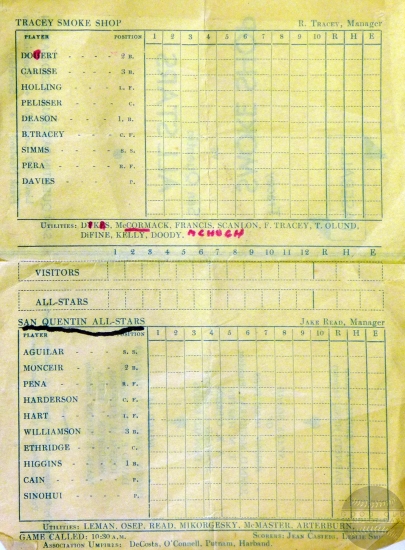 TRACEY SMOKE SHOP R. TRACEY, Manager
PLAYER POSITION 1 2 3 4 5 6 7 8 9 10 R H E
DOUERT 2 B.
CARISSE 3 B.
HOLLING L. F.
PELISSER C.
DEASON 1. B.
B.TRACEY C. F.
SIMMS S. S.
PERA R. F.
DAVIES P.
UTILITIES: DYKES, McCORMACK, FRANCIS, SCANLON, F. TRACEY, T. OLUND.
DiFINE, KELLY, DOODY. McHUGH
1 2 3 4 5 6 7 8 9 10 11 12 R H E
VISITORS
ALL-STARS
SAN QUENTIN ALL-STARS JAKE READ, Manager
PLAYER POSITION 1 2 3 4 5 6 7 8 9 10 R H E
AGUILAR S. S.
MONCEIR 2 B.
PENA R. F.
HARDERSON C. F.
HART L. F.
WILLIAMSON 3 B.
ETHRIDGE C.
HIGGINS 1 B.
CAIN P.
SINOHUI P.
UTILITIES: LEMAN, OSEP, READ, MIKORGESKY, McMASTER, ARTERBURN.
GAME CALLED: 10:30 A.M. SCORERS: JEAN CASTERI, LESLIE
ASSOCIATION UMPIRES: DeCosta, O'Connell, Putnam, Harband.